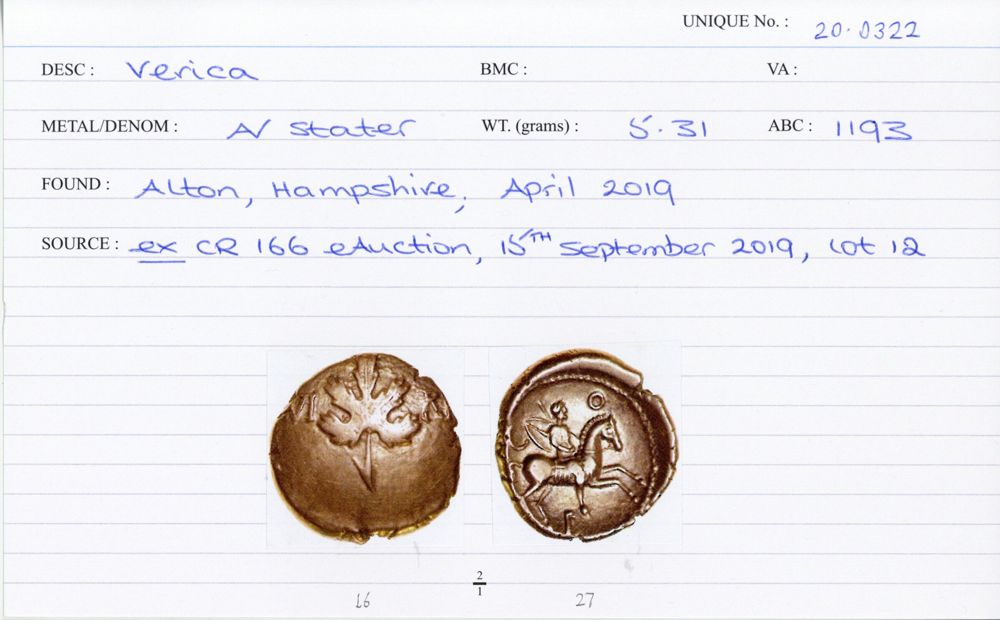 UNIQUE No. : 20.0322
DESC : Verica BMC : VA :
METAL/DENOM : AV Stater WT. (grams) : 5.31 ABC : 1193
FOUND : Alton, Hampshire, April 2019
SOURCE : ex CR 166 eAuction, 15TH September 2019, lot 12
2
1
16 27